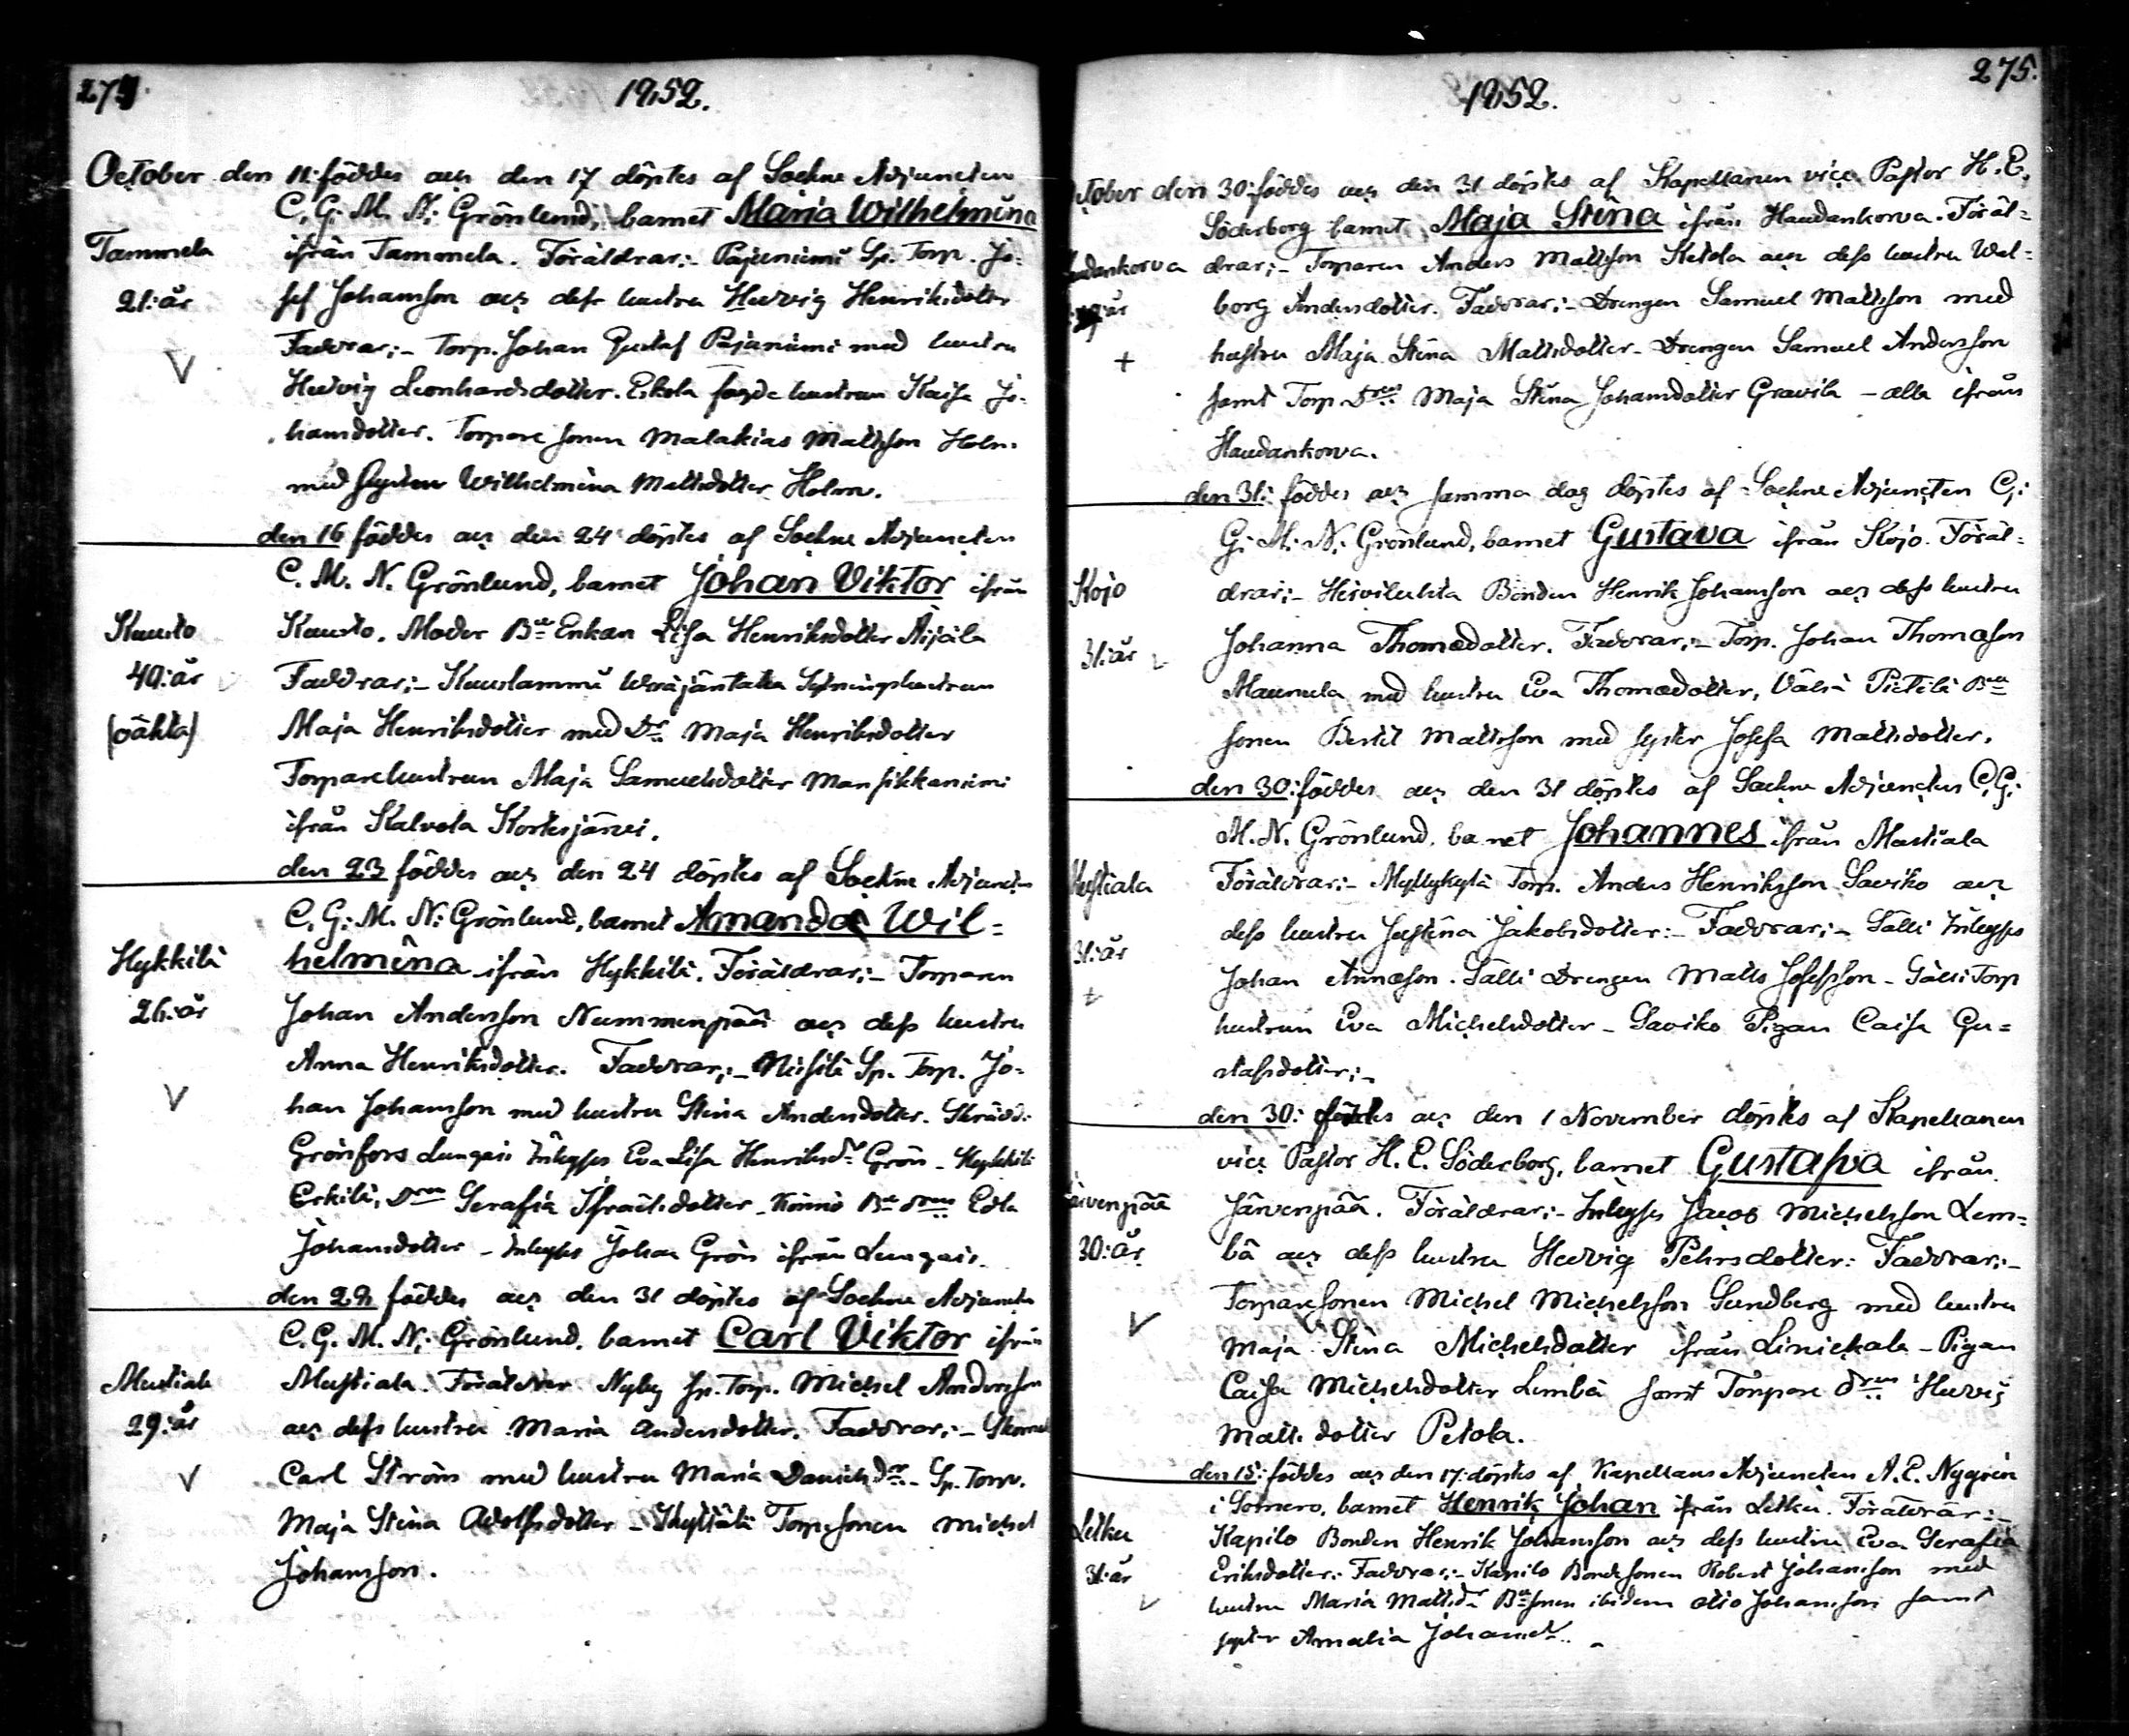 274.
1852.
October den 11: föddes och den 17 döptes af Sockne Adjuncten
C. G. M. N: Grönlund, barnet Maria Wilhelmina
Tammela ifrån Tammela. Föräldrar:- Pajuniemi Sp. Torp. Jo-
21: år sef Johansson och dess hustru Hedvig Henriksdotter
Faddrar:- Torp. Johan Gustaf Pajuniemi med hustru
V Hedvig Leonhardsdotter. Eskola hustrun Kaisa Jo-
hansdotter. Torpare sonen Malakias Mattsson Holm
med syster Wilhelmina Mattsdotter Holm.
den 16 föddes och den 24 döptes af Sockne Adjuncten
C. M. N. Grönlund, barnet Johan Viktor ifrån
Kuusto Kuusto. Moder Bde Enkan Lisa Henriksdotter Äijälä
40: år Faddrar:- Kuuslammi
(oäkta) Maja Henriksdotter med Dr Maja Henriksdotter
Torparehustrun Maja Samuelsdotter Mansikkaniemi
ifrån Kalvola Kortesjärvi.
den 23 föddes och den 24 döptes af Sockne Adjunct
C. G: M. N: Grönlund, barnet Amanda Wil=
Hykkilä helmina ifrån Hykkilä. Föräldrar:- Torparen
26: år Johan Andersson Nummenpää och dess hustru
Anna Henriksdotter. Faddrar:- Sp. Torp. Jo-
V han Johansson med hustru Stina Andersdotter. Skrädd:
Grönfors Lungais Inhyses Eva Lisa Henriksdr Grön - Hykkilä
Erkilä, Dren Serafia Israelsdotter - Bde dren Edla
Johansdotter - Inhyses Johan Grön ifrån Lungais.
den 29 föddes och den 31 döptes af Sockne Adjunct
C. G. M. N: Grönlund, barnet Carl Viktor ifrån
Mustiala Mustiala. Föräldrar Nyby sp. Torp. Michel Andersson
29: år och dess hustru Maria Andersdotter. Faddrar:-
V Carl Ström med hustru Maria Danielsdr - Sp. Torp.
Maja Stina Adolfsdotter - Torp. sonen Michel
Johansson.
275.
1852.
October den 30: föddes och den 31 döptes af Kapellanen vice Pastor H. E.
Söderborg barnet Maja Stina ifrån Haudankorva. Föräl=
Haudankorva drar:- Torparen Anders Mattsson Ketola och dess hustru Wal=
år borg Andersdotter. Faddrar:- Drengen Samuel Mattsson med
+ hustru Maja Stina Mattsdotter - Drengen Samuel Andersson
samt Torp. Dren Maja Stina Johansdotter Gravila - alla ifrån
Haudankorva.
den 31: föddes och samma dag döptes af Sockne Adjuncten C:
G: M: N: Grönlund, barnet Gustava ifrån Kojo. Föräl=
Kojo drar:- Hirvilahta Bonden Henrik Johansson och dess hustru
31: år Johanna Thomædotter. Faddrar:- Torp. Johan Thomæson
Maunula med hustru Eva Thomædotter, Pietilä Bde
sonen Bertil Mattsson med syster Josefa Mattsdotter.
den 30: föddes och den 31 döptes af Sockne Adjuncten C. G:
M. N. Grönlund, barnet Johannes ifrån Mustiala
Mustiala Föräldrar:- Myllykylä Torp. Anders Henriksson Saviko och
31: år dess hustru Justina Jakobsdotter:- Faddrar:- Sälli Inhyses
+ Johan Annæson. Sälli Drengen Matts Josefsson - Sälli Torp
hustrun Eva Michelsdotter - Saviko Pigan Caisa Gu=
stafsdotter:-
den 30: föddes och den 1 November döptes af Kapellanen
vice Pastor H. E. Söderborg, barnet Gustafva ifrån
Järvenpää Järvenpää. Föräldrar:- Inhyses Jacob Michelsson Lem=
30: år bä och dess hustru Hedvig Pehrsdotter: Faddrar:-
V Torparesonen Michel Michelsson Sundberg med hustru
Maja Stina Michelsdotter ifrån Liniekala - Pigan
Caisa Michelsdotter Lembä samt Torpare dren Hedvig
Matts dotter Petola.
den 15: föddes och den 17: döptes af Kapellans Adjuncten A. E. Nygrén
i Somero, barnet Henrik Johan ifrån Letku. Föräldrar:-
Letku Kapilo Bonden Henrik Johansson och dess hustru Eva Serafia
31: år Eriksdotter:- Faddrar:- Kapilo Bondesonen Robert Johansson med
hustru Maria Mattsdr Bdesonen ibidem Otto Johansson samt
syster Amalia Johansdr. -